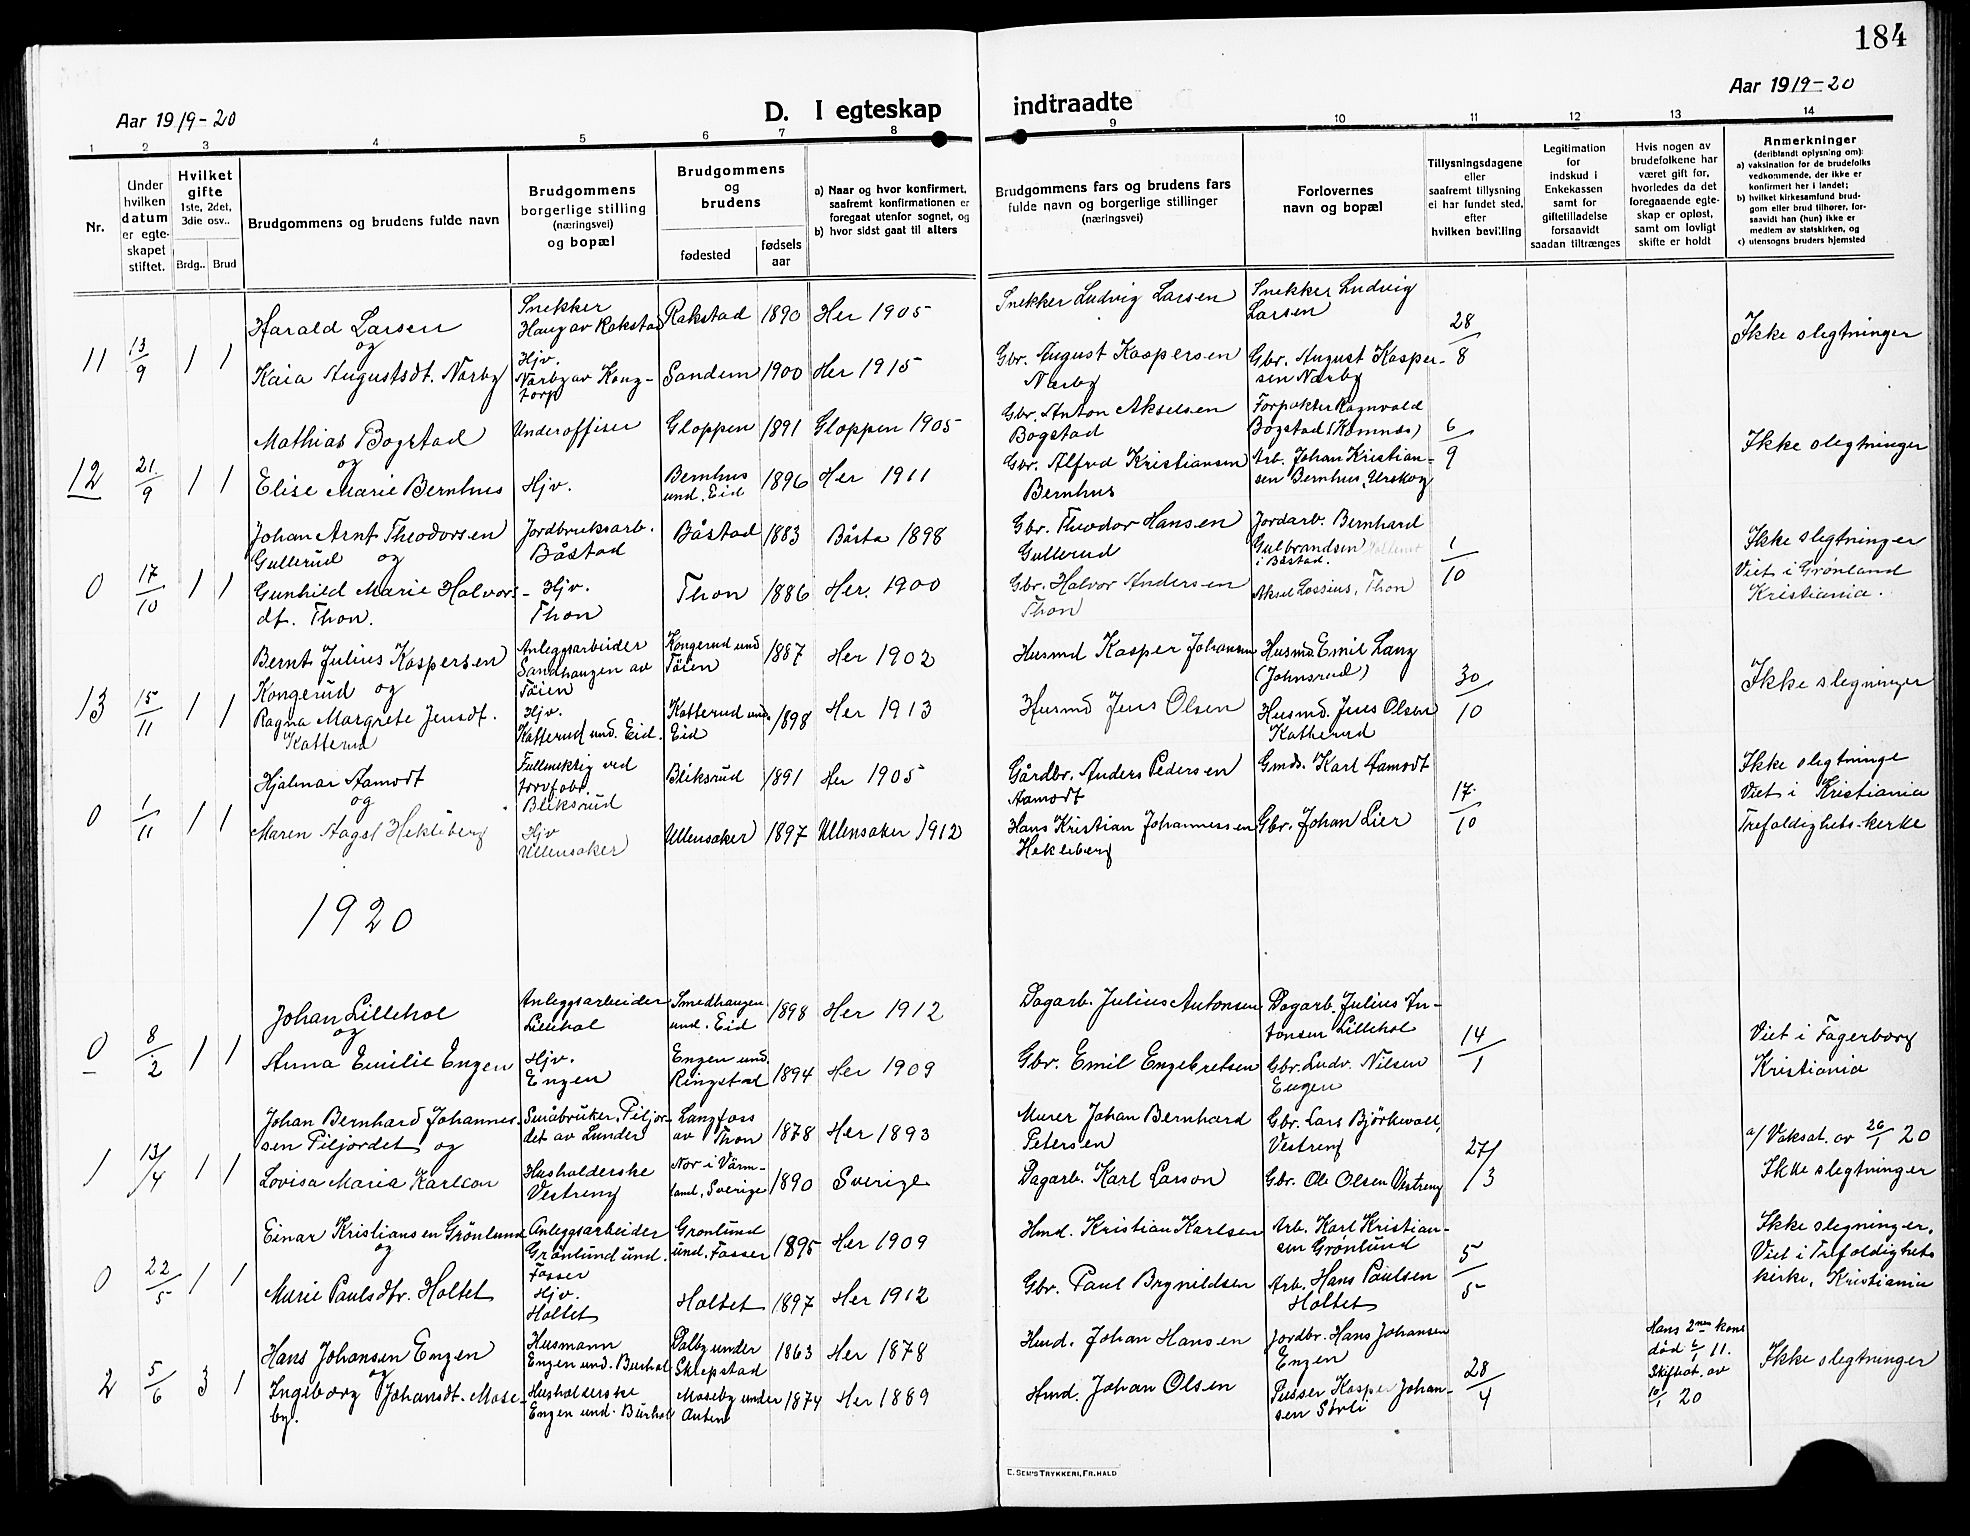 184
Aar 1919-20
D. I egteskap
indtraadte
Aar 1919-20
1 2 3 4 5 6 7 8 9 10 11 12 13 14
Nr.
Under hvilken datum er egteskapet stiftet.
Hvilket gifte 1ste, 2det, 3die osv..
Brdg.. Brud
Brudgommens og brudens fulde navn
Brudgommens borgerlige stilling (næringsvei) og bopæl
Brudgommens og brudens
fødested
fødsels aar
a) Naar og hvor konfirmert, saafremt konfirmationen er foregaat utenfor sognet, og
b) hvor sidst gaat til alters
Brudgommens fars og brudens fars fulde navn og borgerlige stillinger (næringsvei)
Forlovernes navn og bopæl
Tillysningsdagene eller saafremt tillysning ei har fundet sted, efter hvilken bevilling
Legitimation for indskud i Enkekassen samt for giftetilladelse forsaavidt saadan tiltrænges
Hvis nogen av brudefolkene har været gift før, hvorledes da det foregaaende egteskap er opløst, samt om lovligt skifte er holdt
Anmerkninger (deriblandt oplysning om):
a) vaksination for de brudefolks vedkommende, der ikke er konfirmert her i landet;
b) hvilket kirkesamfund brudgom eller brud tilhører, forsaavidt han (hun) ikke er medlem av statskirken, og
c) utensogns bruders hjemsted
11 13/9 1 1
Harald Larsen
og
Kaia Augustsdt. Narby
Snekker
Haug av Rakstad
Hjv.
Narby av Kongtorp
Rakstad 1890 Her 1905
Sandem 1900 Her 1915
Snekker Ludvig Larsen
Gbr. August Kaspersen
Narby
Snekker Ludvig
Larsen
Gbr. August Kaspersen Narby
28/8
Ikke slegtninger
12 21/9 1 1
Mathias Bogstad
og
Elise Marie Bernhus
Underoffiser
Hjv.
Gloppen 1891 Gloppen 1905
Bernhus
und. Eid 1896 Her 1911
Gbr. Anton Akselsen
Bogstad
Gbr. Alfred Kristiansen
Bernhus
Forpakter Ragnvald
Bogstad (Komnæs)
Arb. Johan Kristiansen Bernhus, Urskog
6/9
Ikke slegtninger
0 17/10 1 1
Johan Arnt Theodorsen
Gullerud og
Gunhild Marie Halvorsdt. Thon.
Jordbruksarb.
Båstad
Hjv.
Thon
Båstad 1883 Båsta 1898
Thon 1886 Her. 1900
Gbr. Theodor Hansen
Gullerud
Gbr. Halvor Andersen
Thon
Jordarb. Bernhard
Gulbrandsen
i Båstad.
Aksel Lossius, Thon
1/10
Ikke slegtninger
Viet i Grønland
Kristiania.
13 15/11 1 1
Bernt Julius Kaspersen
Kongerud og
Ragna Margrete Jensdt.
Katterud
Anleggsarbeider
Sandhaugen av
Töien
Hjv.
Katterud und. Eid.
Kongerud und
Töien 1887 Her 1902
Katterud und.
Eid 1898 Her 1913
Husmd Kasper Johansen
Husmd Jens Olsen
Husmd. Emil Lang
(Johnsrud)
Husmd. Jens Olsen
Katterud
30/10
Ikke slegninger
0 1/11 1 1
Hjalmar Aamodt
og
Maren Aagst Hekliberg
Fullmektig ved
torvfabr.
Bliksrud
Hjv
Ullensaker
Bliksrud 1891 Her 1905
Ullensaker 1897 Ullensaker 1912
Gårdbr. Anders Pedersen
Aamodt
Hans Kristian Johannessen
Hekleberg
Gmds. Karl Aamodt
Gbr. Johan Lier
17/10
Ikke slegtninge
Viet i Kristiania
Trefoldighets-kerke
1920
0 8/2 1 1
Johan Lillehol
og
Anna Emilie Engen
Anleggsarbeider
Lillehol
Hjv.
Engen
Smedhaugen
und. Eid 1898 Her 1912
Engen und.
Ringstad 1894 Her 1909
Dagarb. Julius Antonsen
Gbr. Emil Engebretsen
Dagarb. Julius Antonsen Lillehol
Gbr. Ludv. Nilsen
Engen
14/1
Viet i Fagerborg
Kristiania
1 13/4 1 1
Johan Bernhard Johannessen Piljordet og
Lovisa Maria Karlson
Småbruker, Piljordet av Lunder
Husholderske
Vestreng
Langfoss
av Thon 1878 Her 1893
Nor i Värmland, Sverige 1890 Sverige
Murer Johan Bernhard
Petersen
Dagarb. Karl Larson
Gbr. Lars Björkvall,
Vestreng
Gbr. Ole Olsen Vestreng
27/3
a/ Vaksat. av 26/1 20
Ikke slegtninger
0 22/5 1 1
Einar Kristiansen Grönlund
og
Marie Paulsdtr. Holtet
Anleggsarbeider
Grönlund und.
Fosser
Hjv.
Holtet
Gronlund
und. Fosser 1895 Her 1909
Holtet 1897 Her 1912
Hmd. Kristian Karlsen
Gbr. Paul Brynildsen
Arb. Karl Kristiansen Grönlund
Arb. Hans Paulsen
Holtet
5/5
Ikke slegninger.
Viet i Trefoldighets
kirke, Kristiania
2 5/6 3 1
Hans Johansen Engen
og
Ingeborg Johansdt. Moseby.
Husmann
Engen und. Burhol
Husholderske
Engen und. Burhol
Dalby under
Sklepstad 1863 Her 1878
Moseby under
Auten 1874 Her 1889
Hmd. Johan Hansen
Hmd. Johan Olsen
Jordbr. Hans Johansen
Engen
Pusser Kasper Johansen Sörli
28/4
Hans 2nen kone
död 6/1 11.
Skiftat. av
10/1 20
Ikke slegtninger
E. SEM'S TRYKKERI, FR.HALD